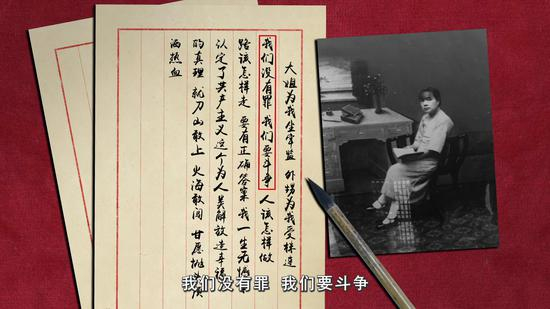 大姐为我坐牢监 外甥为我受株连
我们没有罪 我们要斗争 人该怎样做
路该怎样走 要有正确答案 我一生无憾
认定了共产主义这个为人类解放造幸福
的真理 就刀山敢上 火海敢闯 甘愿抛头颅
洒热血
我们没有罪 我们要斗争